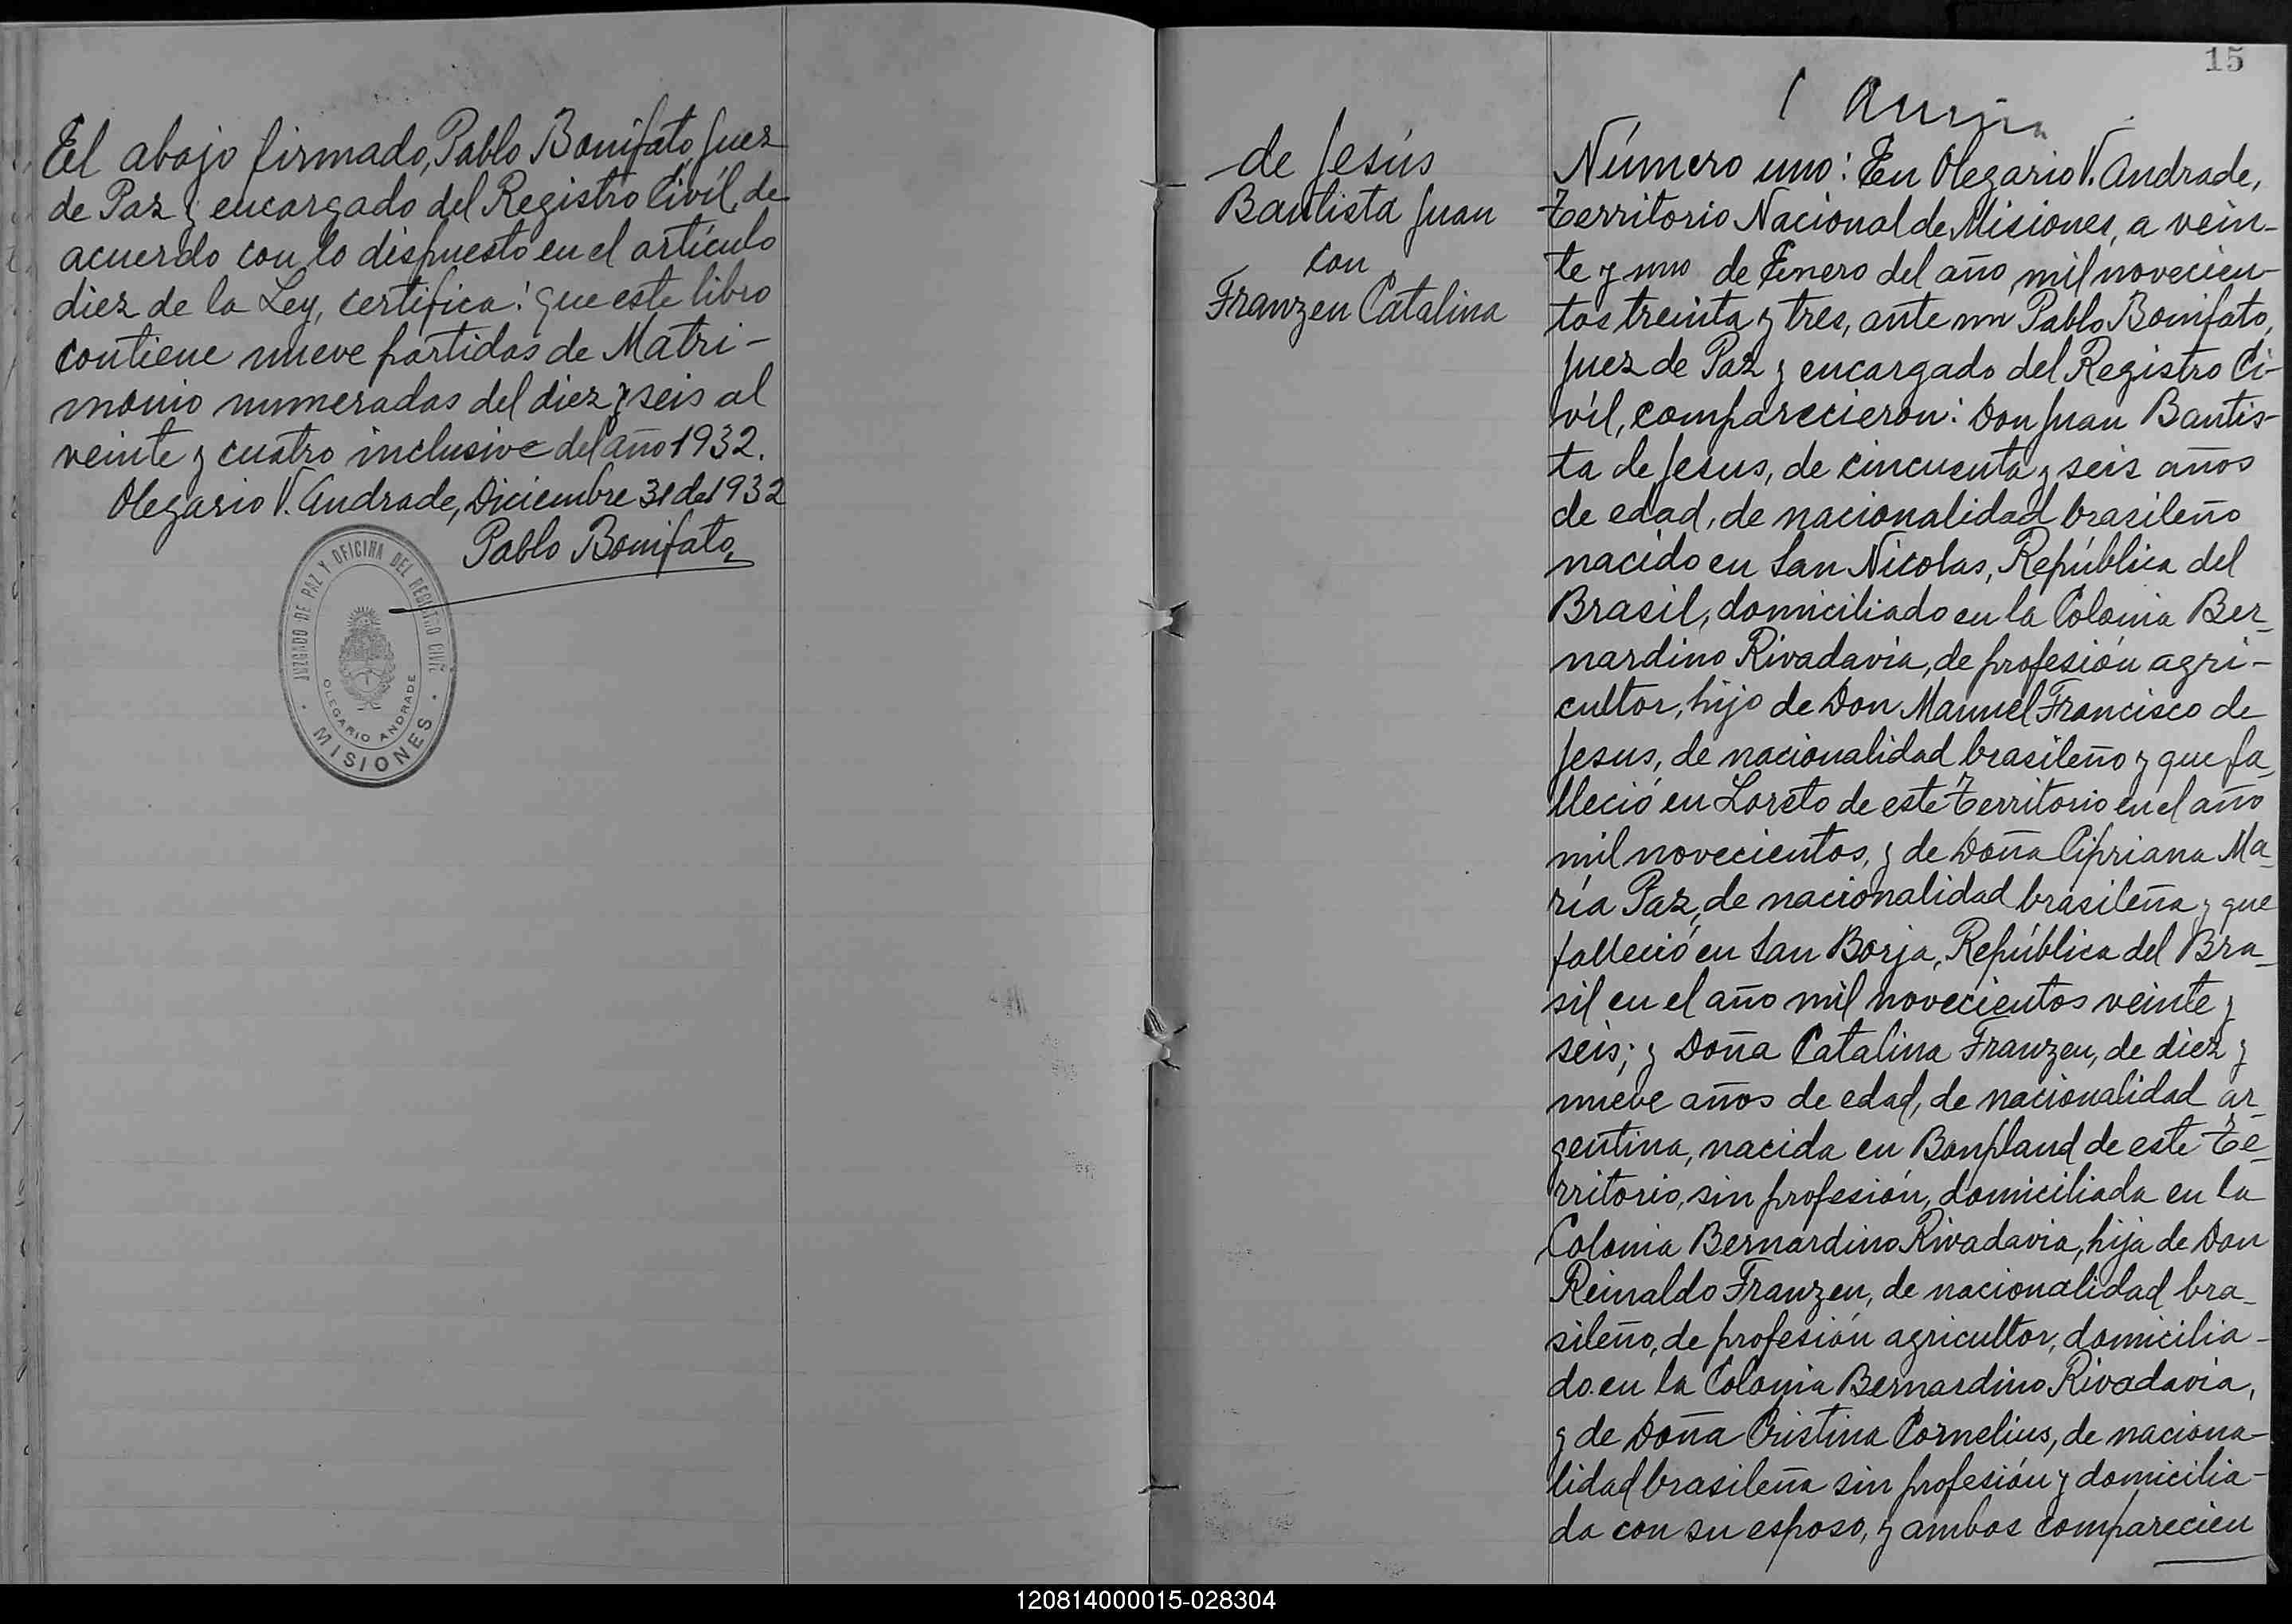 El abajo firmado, Pablo Bonifato, Juez
de Paz y encargado del Registro Civil, de
acuerdo con lo dispuesto en el artículo
diez de la Ley, certifica: que este libro
contiene nueve partidas de Matri-
monio numeradas del diez y seis al
veinte y cuatro inclusive del año 1932.
Olegario V. Andrade, Diciembre 31 de 1932
Pablo Bonifato
JUZGADO DE PAZ Y OFICINA DEL REGISTRO CIVIL
OLEGARIO ANDRADE
MISIONES
15
de Jesús
Bautista Juan
con
Franzen Catalina
Número uno: En Olegario V. Andrade,
Territorio Nacional de Misiones, a vein-
te y uno de Enero del año mil novecien-
tos treinta y tres, ante mi Pablo Bonifato,
Juez de Paz y encargado del Registro Ci-
vil, comparecieron: Don Juan Bautis-
ta de Jesus, de cincuenta y seis años
de edad, de nacionalidad brasileño
nacido en San Nicolas, República del
Brasil, domiciliado en la Colonia Ber-
nardino Rivadavia, de profesión agri-
cultor, hijo de Don Manuel Francisco de
Jesus, de nacionalidad brasileño y que fa-
lleció en Loreto de este Territorio en el año
mil novecientos, y de Doña Cipriana Ma-
ría Paz, de nacionalidad brasileña y que
falleció en San Borja, República del Bra-
sil en el año mil novecientos veinte y
seis; y Doña Catalina Franzen, de diez y
nueve años de edad, de nacionalidad ar-
gentina, nacida en Bonpland de este Te-
rritorio, sin profesión, domiciliada en la
Colonia Bernardino Rivadavia, hija de Don
Reinaldo Franzen, de nacionalidad bra-
sileño, de profesión agricultor, domicilia-
do en la Colonia Bernardino Rivadavia,
y de Doña Cristina Cornelius, de naciona-
lidad brasileña sin profesión y domicilia-
da con su esposo, y ambos comparecien
120814000015-028304